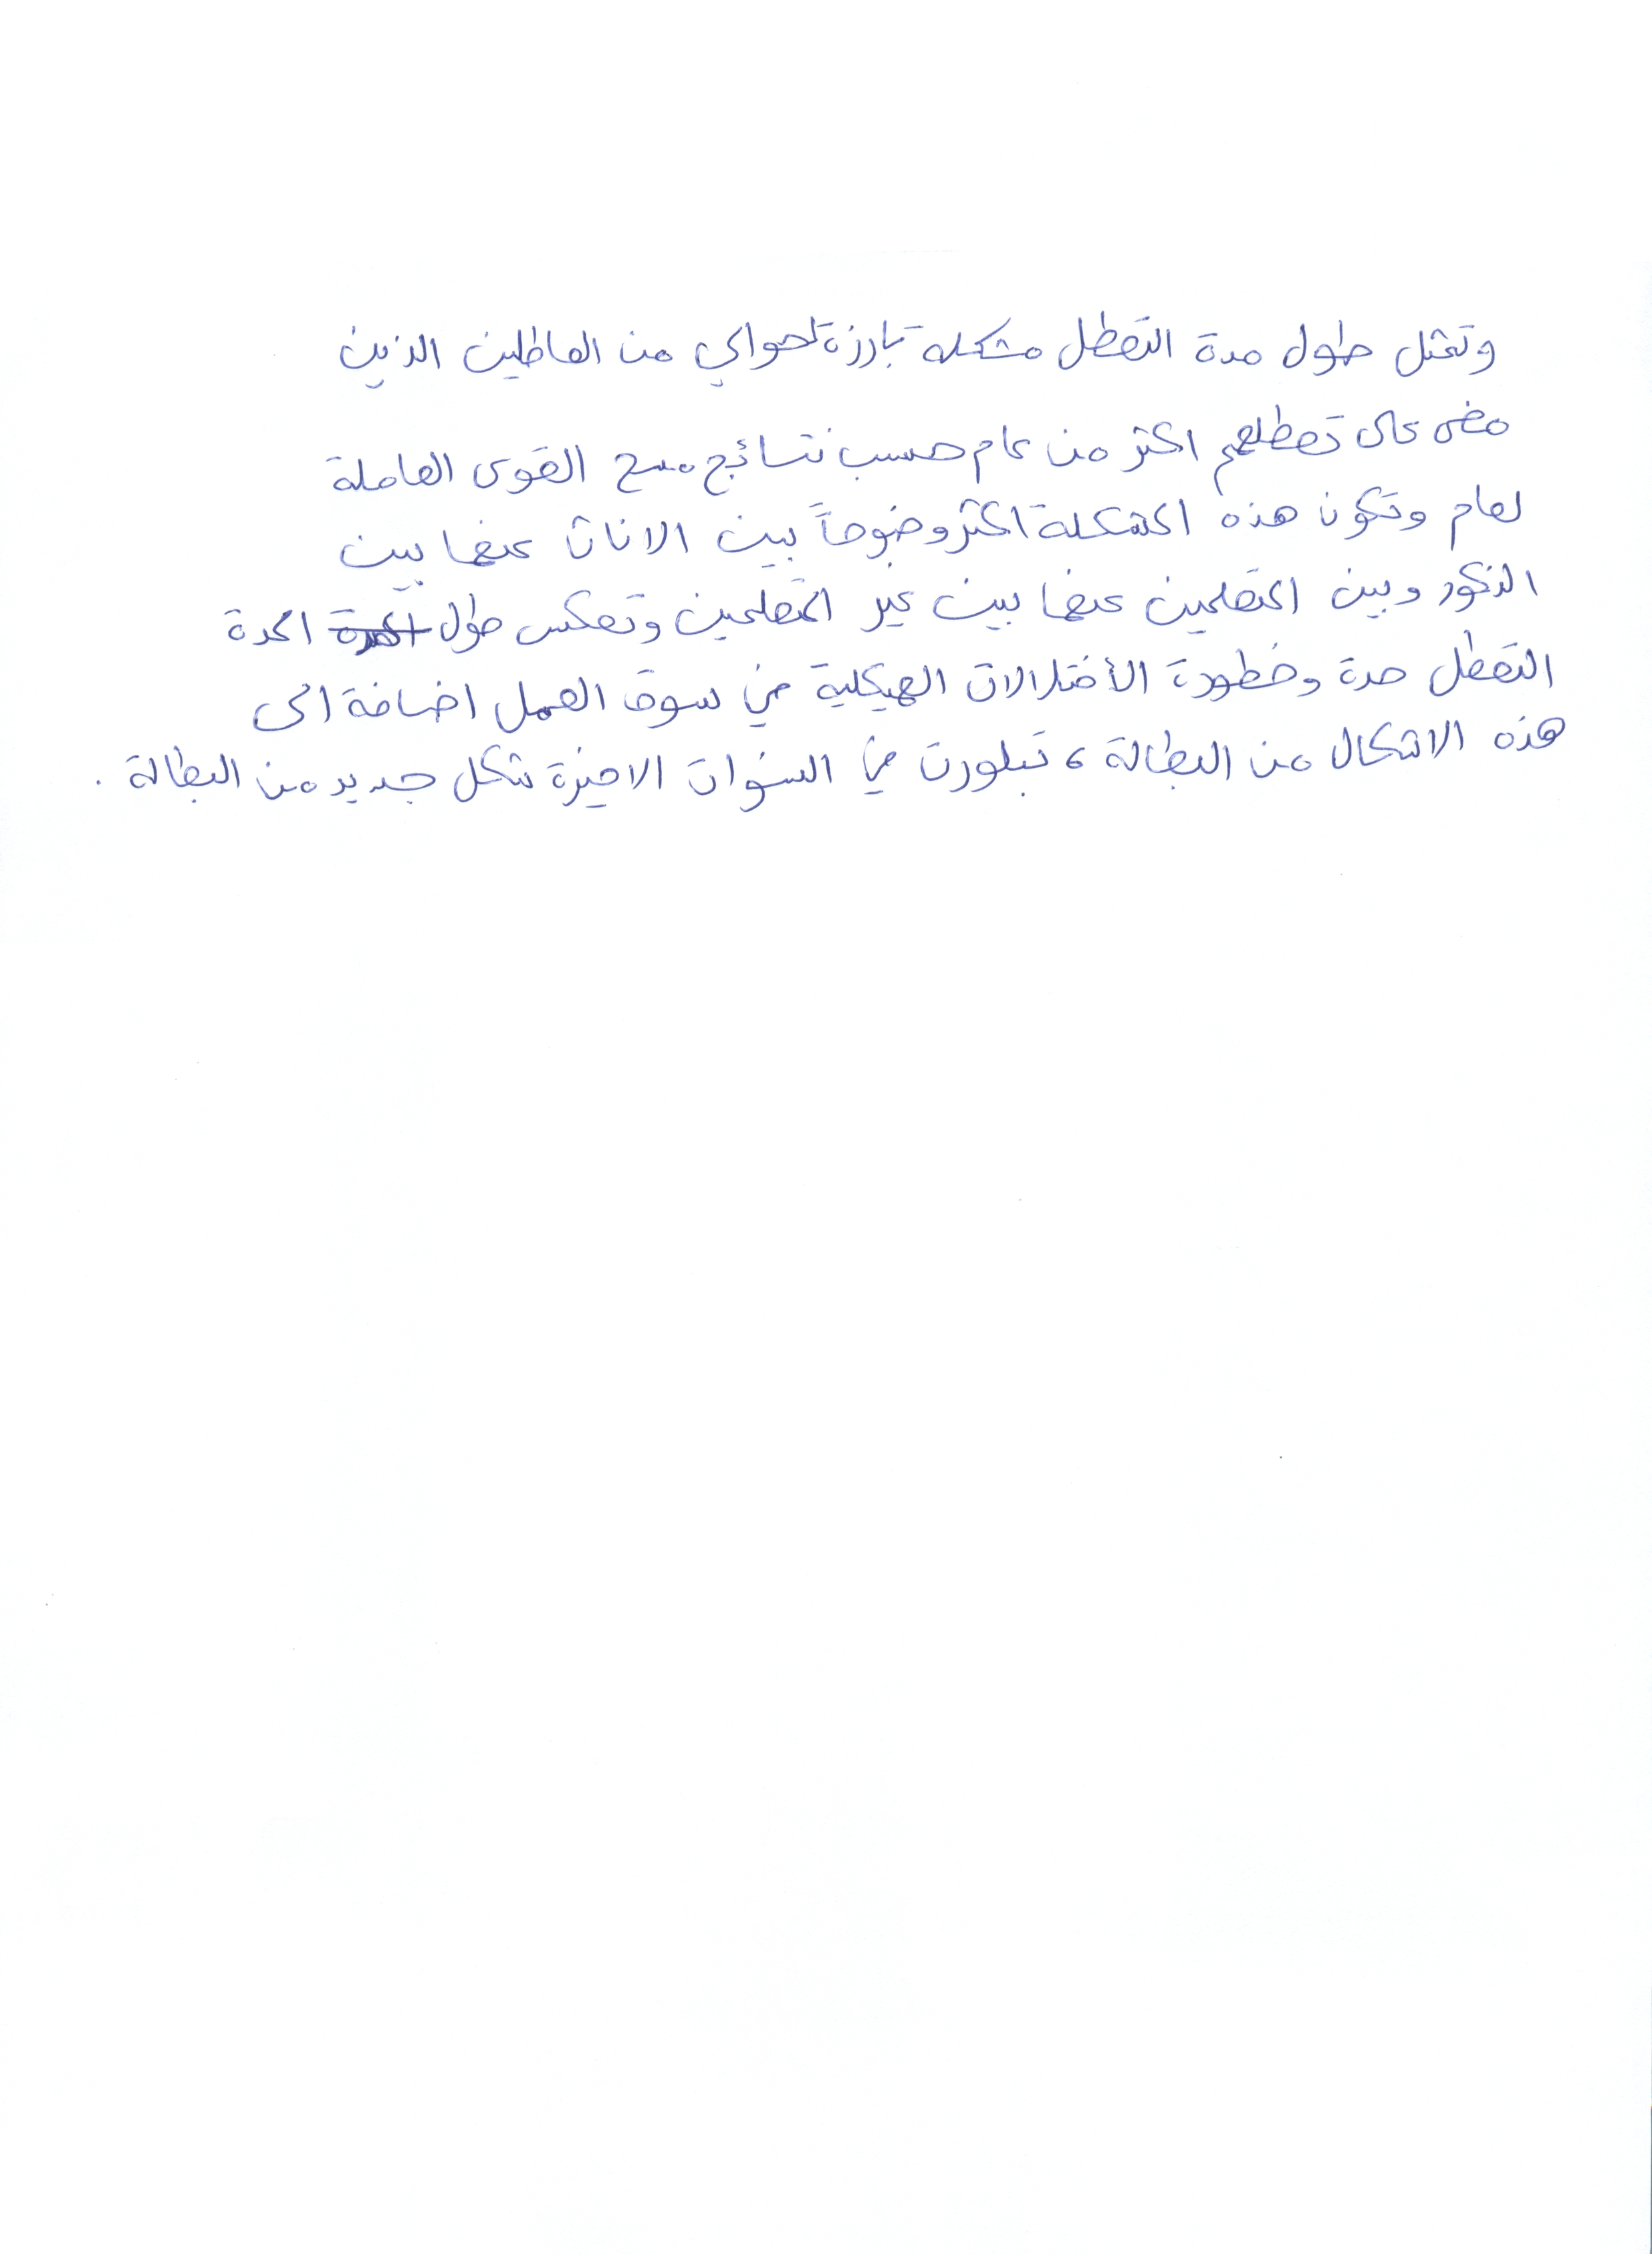 وتمثل طول مدة التعطل مشكلة بارزة لحوالي من العاطلين الذين
مضى على تعطلهم اكثر من عام حسب نتسائج مسح القوى العاملة
لعام وتكون هذه المشكلة اكثر وضوحاً بين الاناث عنها بين
الذكور وبين المتعلمين عنها بين غير المتعلمين وتعكس طول المدة
التعطل حدة وخطورة الأختلالات الهيكلية في سوق العمل اضافة الى
هذه الاشكال من البطالة ، تبلورت في السنوات الاخيرة شكل جديد من البطالة .